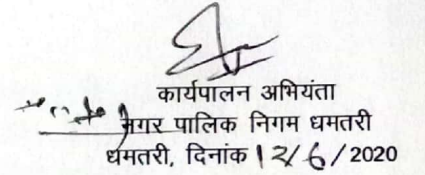 कार्यपालन अभियंता
नगर पालिक निगम धमतरी
धमतरी, दिनांक 12/6/2020